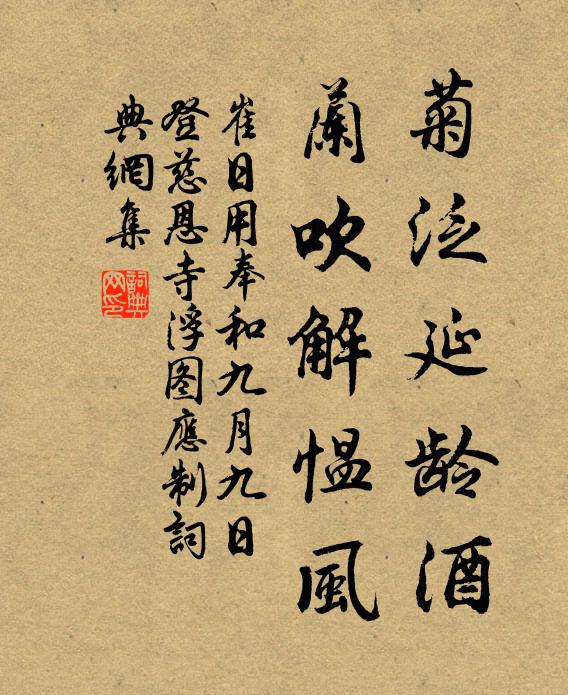 菊泛延龄酒
蘭吹解愠風
崔日用奉和九月九日
登慈恩寺浮图應制詞
典網集
詞典网印